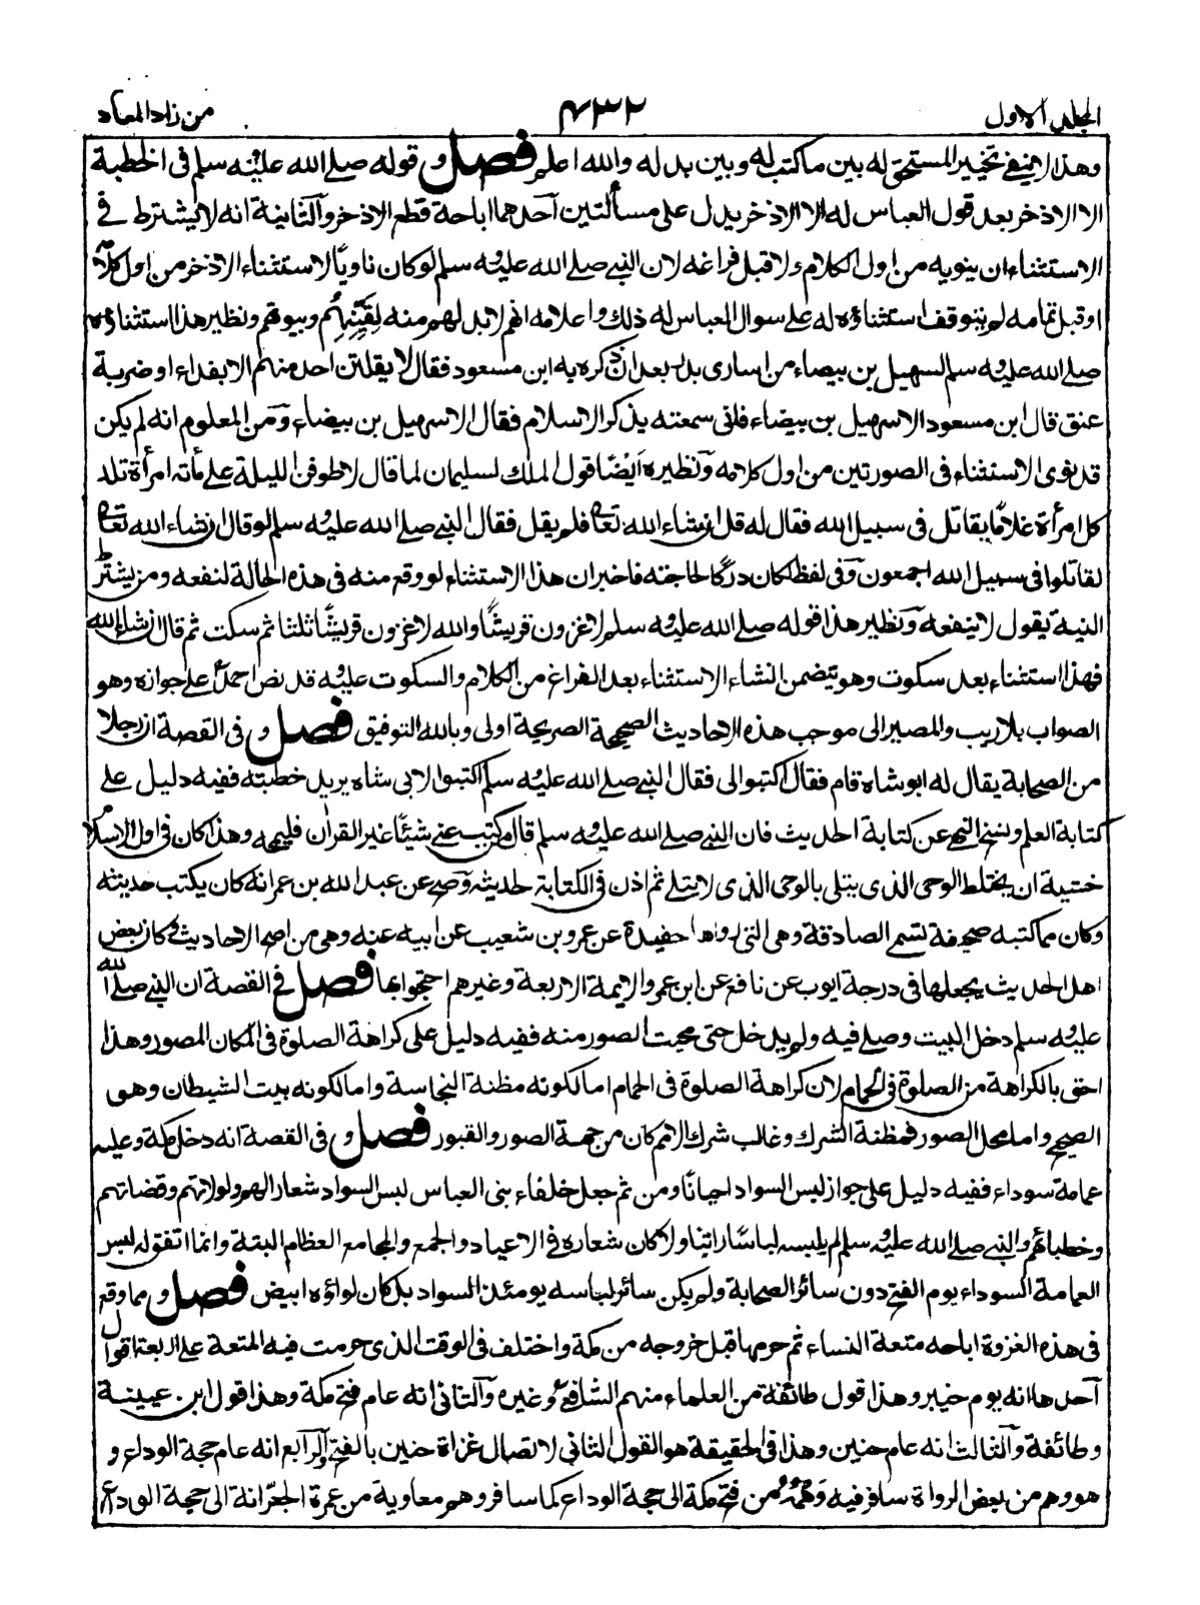 المجلد الاول
۴۳۲
من زاد المعاد
وهذا لا ينفے تخيير المستحق له بين ما كتب له وبين بدله والله اعلم فصل و قوله صلے الله عليه وسلم فى الخطبة
الا الاذخر بعد قول العباس له الا الاذخر يدل على مسألتين آحدهما اباحة قطع الاذخر وآلثانية انه لا يشترط فے
الاستثناء ان ينويه من اول الكلام ولا قبل فراغه لان النبے صلے الله عليه وسلم لو كان ناويًا لاستثناء الاذخر من اول كلامه
او قبل تمامه لم يتوقف استثناؤه له على سوال العباس له ذلك واعلامه انهم لا بد لهم منه لقَينِهِم وبيوتهم ونظير هذا استثناؤه
صلے الله عليه وسلم لسهيل بن بيضاء من اسارى بدر بعد ان ذكره به ابن مسعود فقال لا ينفلتن احد منهم الا بفداء او ضربة
عنق فقال ابن مسعود الا سهيل بن بيضاء فانى سمعته يذكر الاسلام فقال الا سهيل بن بيضاء وَمن المعلوم انه لم يكن
قد نوى الاستثناء فى الصورتين من اول كلامه وَنظيره اَيضًا قول الملك لسليمان لما قال لاطوفن الليلة على مأته امرأة تلد
كل امرأة غلامًا يقاتل فى سبيل الله فقال له قل ان شاء الله تعالى فلم يقل فقال النبے صلے الله عليه وسلم لو قال ان شاء الله تعالى
لقاتلوا فى سبيل الله اجمعون وَفى لفظ لكان دركًا لحاجته فاخبر ان هذا الاستثناء لو وقع منه فى هذه الحالة لنفعه ومن يشترط
النية يقول لا ينفعه وَنظير هذا قوله صلے الله عليه وسلم لاغزون قريشًا والله لاغزون قريشًا ثلثا ثم سكت ثم قال ان شاء الله
فهذا استثناء بعد سكوت وهو يتضمن انشاء الاستثناء بعد الفراغ من الكلام والسكوت عليه وقد نص احمد على جوازه وهو
الصواب بلا ريب والمصير الى موجب هذه الاحاديث الصحيحة الصريحة اولى وبالله التوفيق فصل و فى القصة ان رجلا
من الصحابة يقال له ابو شاه قام فقال اكتبوا لى فقال النبے صلے الله عليه وسلم اكتبوا لابى شاه يريد خطبته ففيه دليل على
كتابة العلم ونسخ النهے عن كتابة الحديث فان النبے صلے الله عليه وسلم قال من كتب عنى شيئًا غير القرأن فليمحه وهذا كان فى اول الاسلام
خشية ان يختلط الوحى الذى يتلى بالوحى الذى لا يتلے ثم اذن فى الكتابة لحديثه وَصح عن عبد الله بن عمر انه كان يكتب حديثه
وكان مما كتبه صحيفة تسمى الصادقة وهى التى رواها حفيده عن عمرو بن شعيب عن ابيه عنه وهى من اصح الاحاديث وكان بعض
اهل الحديث يجعلها فى درجة ايوب عن نافع عن ابن عمر والايمة الاربعة وغيرهم احتجوا بها فصل فى القصة ان النبے صلے الله
عليه وسلم دخل البيت وصلے فيه ولم يدخل حتى محيت الصور منه ففيه دليل على كراهة الصلوة فى المكان المصور وهذا
احق بالكراهة من الصلوة فى الحمام لان كراهة الصلوة فى الحمام اما لكونه مظنة النجاسة واما لكونه بيت الشيطان وهو
الصحيح واما محل الصور فمظنة الشرك وغالب شرك الامم كان من جهة الصور والقبور فصل و فى القصة انه دخل مكة وعليه
عمامة سوداء ففيه دليل على جواز لبس السواد احيانًا ومن ثم جعل خلفاء بنى العباس لبس السواد شعارا لهم ولولاتهم وقضاتهم
وخطبائهم والنبے صلے الله عليه وسلم لم يلبسه لباسًا راتبًا ولا كان شعاره فى الاعياد والجمع والمجامع العظام البتة وانما اتفق له لبس
العمامة السوداء يوم الفتح دون سائر الصحابة ولم يكن سائر لباسه يومئذ السواد بل كان لواؤه ابيض فصل و مما وقع
فى هذه الغزوة اباحه متعة النساء ثم حرمها قبل خروجه من مكة واختلف فى الوقت الذى حرمت فيه المتعة على اربعة اقوال
آحدها انه يوم خيبر وهذا قول طائفة من العلماء منهم الشافعے وغيره وآلثانى انه عام فتح مكة وهذا قول ابن عيينة
وطائفة وآلثالث انه عام حنين وهذا فى الحقيقة هو القول الثانى لاتصال غزاة حنين بالفتح وآلرابع انه عام حجة الوداع و
هو وهم من بعض الرواة سافر فيه وَهمُهُ من فتح مكة الى حجة الوداع كما سافر وهم معاوية من عمرة الجعرانة الى حجة الوداع